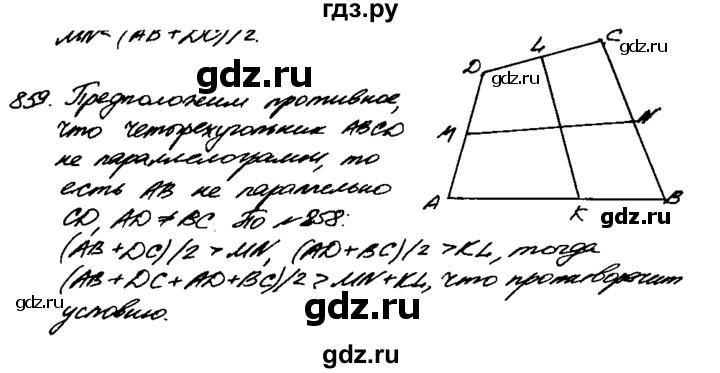 гдз.ру
MN = (AB + DC)/2.
gdz.ru
859. Предположим противное,
что четырехугольник ABCD
не параллелограмм, то
есть AB не параллельно
CD, AD ≠ BC. По №858:
(AB + DC)/2 > MN, (AD + BC)/2 > KL, тогда
(AB + DC + AD + BC)/2 > MN + KL, что противоречит
условию.
D L C
M N
A K B
gdz.ru
gdz.ru
gdz.ru
gdz.ru
gdz.ru
gdz.ru
gdz.ru
gdz.ru